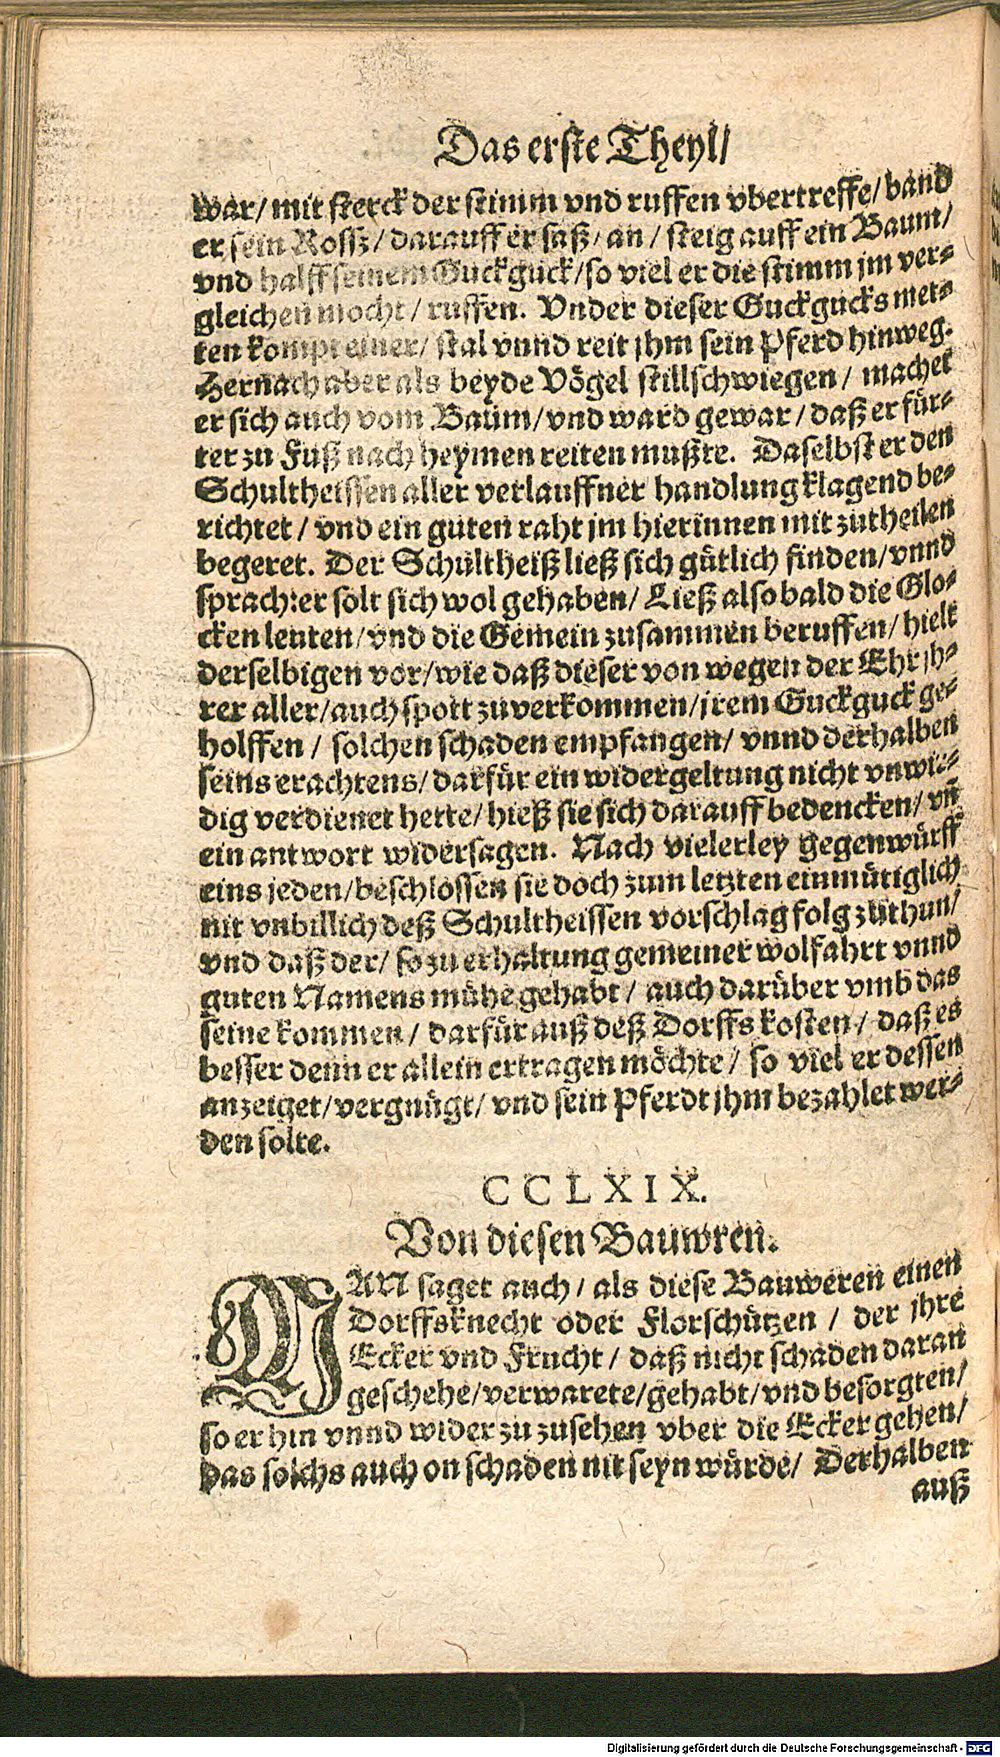 Das erste Theyl/
war/ mit sterck der stimm vnd ruffen vbertreffe/ band
er sein Rossz/ darauff er saß/ an / steig auff ein Baum/
vnd halff seinem Guckguck/ so viel er die stimm jm ver-
gleichen mocht/ ruffen. Vnder dieser Guckgucks met-
ten kompt einer/ stal vnnd reit jhm sein Pferd hinweg.
Hernach aber als beyde Vögel stillschwiegen / machet
er sich auch vom Baum/ vnd ward gewar/ daß er für-
ter zu Fuß nach heymen reiten mußte. Daselbst er den
Schultheissen aller verlauffner handlung klagend be-
richtet / vnd ein guten raht jm hierinnen mit zutheilen
begeret. Der Schultheiß ließ sich gütlich finden/ vnnd
sprach: er solt sich wol gehaben/ Ließ also bald die Glo-
cken leuten/ vnd die Gemein zusammen beruffen/ hielt
derselbigen vor/ wie daß dieser von wegen der Ehr jh-
rer aller/ auch spott zuverkommen/ jrem Guckguck ge-
holffen / solchen schaden empfangen/ vnnd derhalben
seins erachtens/ darfür ein widergeltung nicht vnwir-
dig verdienet hette/ hieß sie sich darauff bedencken/ vñ
ein antwort widersagen. Nach vielerley gegenwürff
eins jeden/ beschlossen sie doch zum letzten einmütiglich
nit vnbillich deß Schultheissen vorschlag folg zuthun/
vnd daß der/ so zu erhaltung gemeiner wolfahrt vnnd
guten Namens mühe gehabt / auch darüber vmb das
seine kommen / darfür auß deß Dorffs kosten / daß es
besser denn er allein ertragen möchte / so viel er dessen
anzeiget/ vergnügt/ vnd sein Pferdt jhm bezahlet wer-
den solte.
CCLXIX.
Von diesen Bauwren.
MAN saget auch / als diese Bauweren einen
Dorffsknecht oder Florschützen / der jhre
Ecker vnd Frucht / daß nicht schaden daran
geschehe/ verwarete/ gehabt/ vnd besorgten/
so er hin vnnd wider zu zusehen vber die Ecker gehen/
das solchs auch on schaden nit seyn würde/ Derhalben
auß
Digitalisierung gefördert durch die Deutsche Forschungsgemeinschaft - DFG